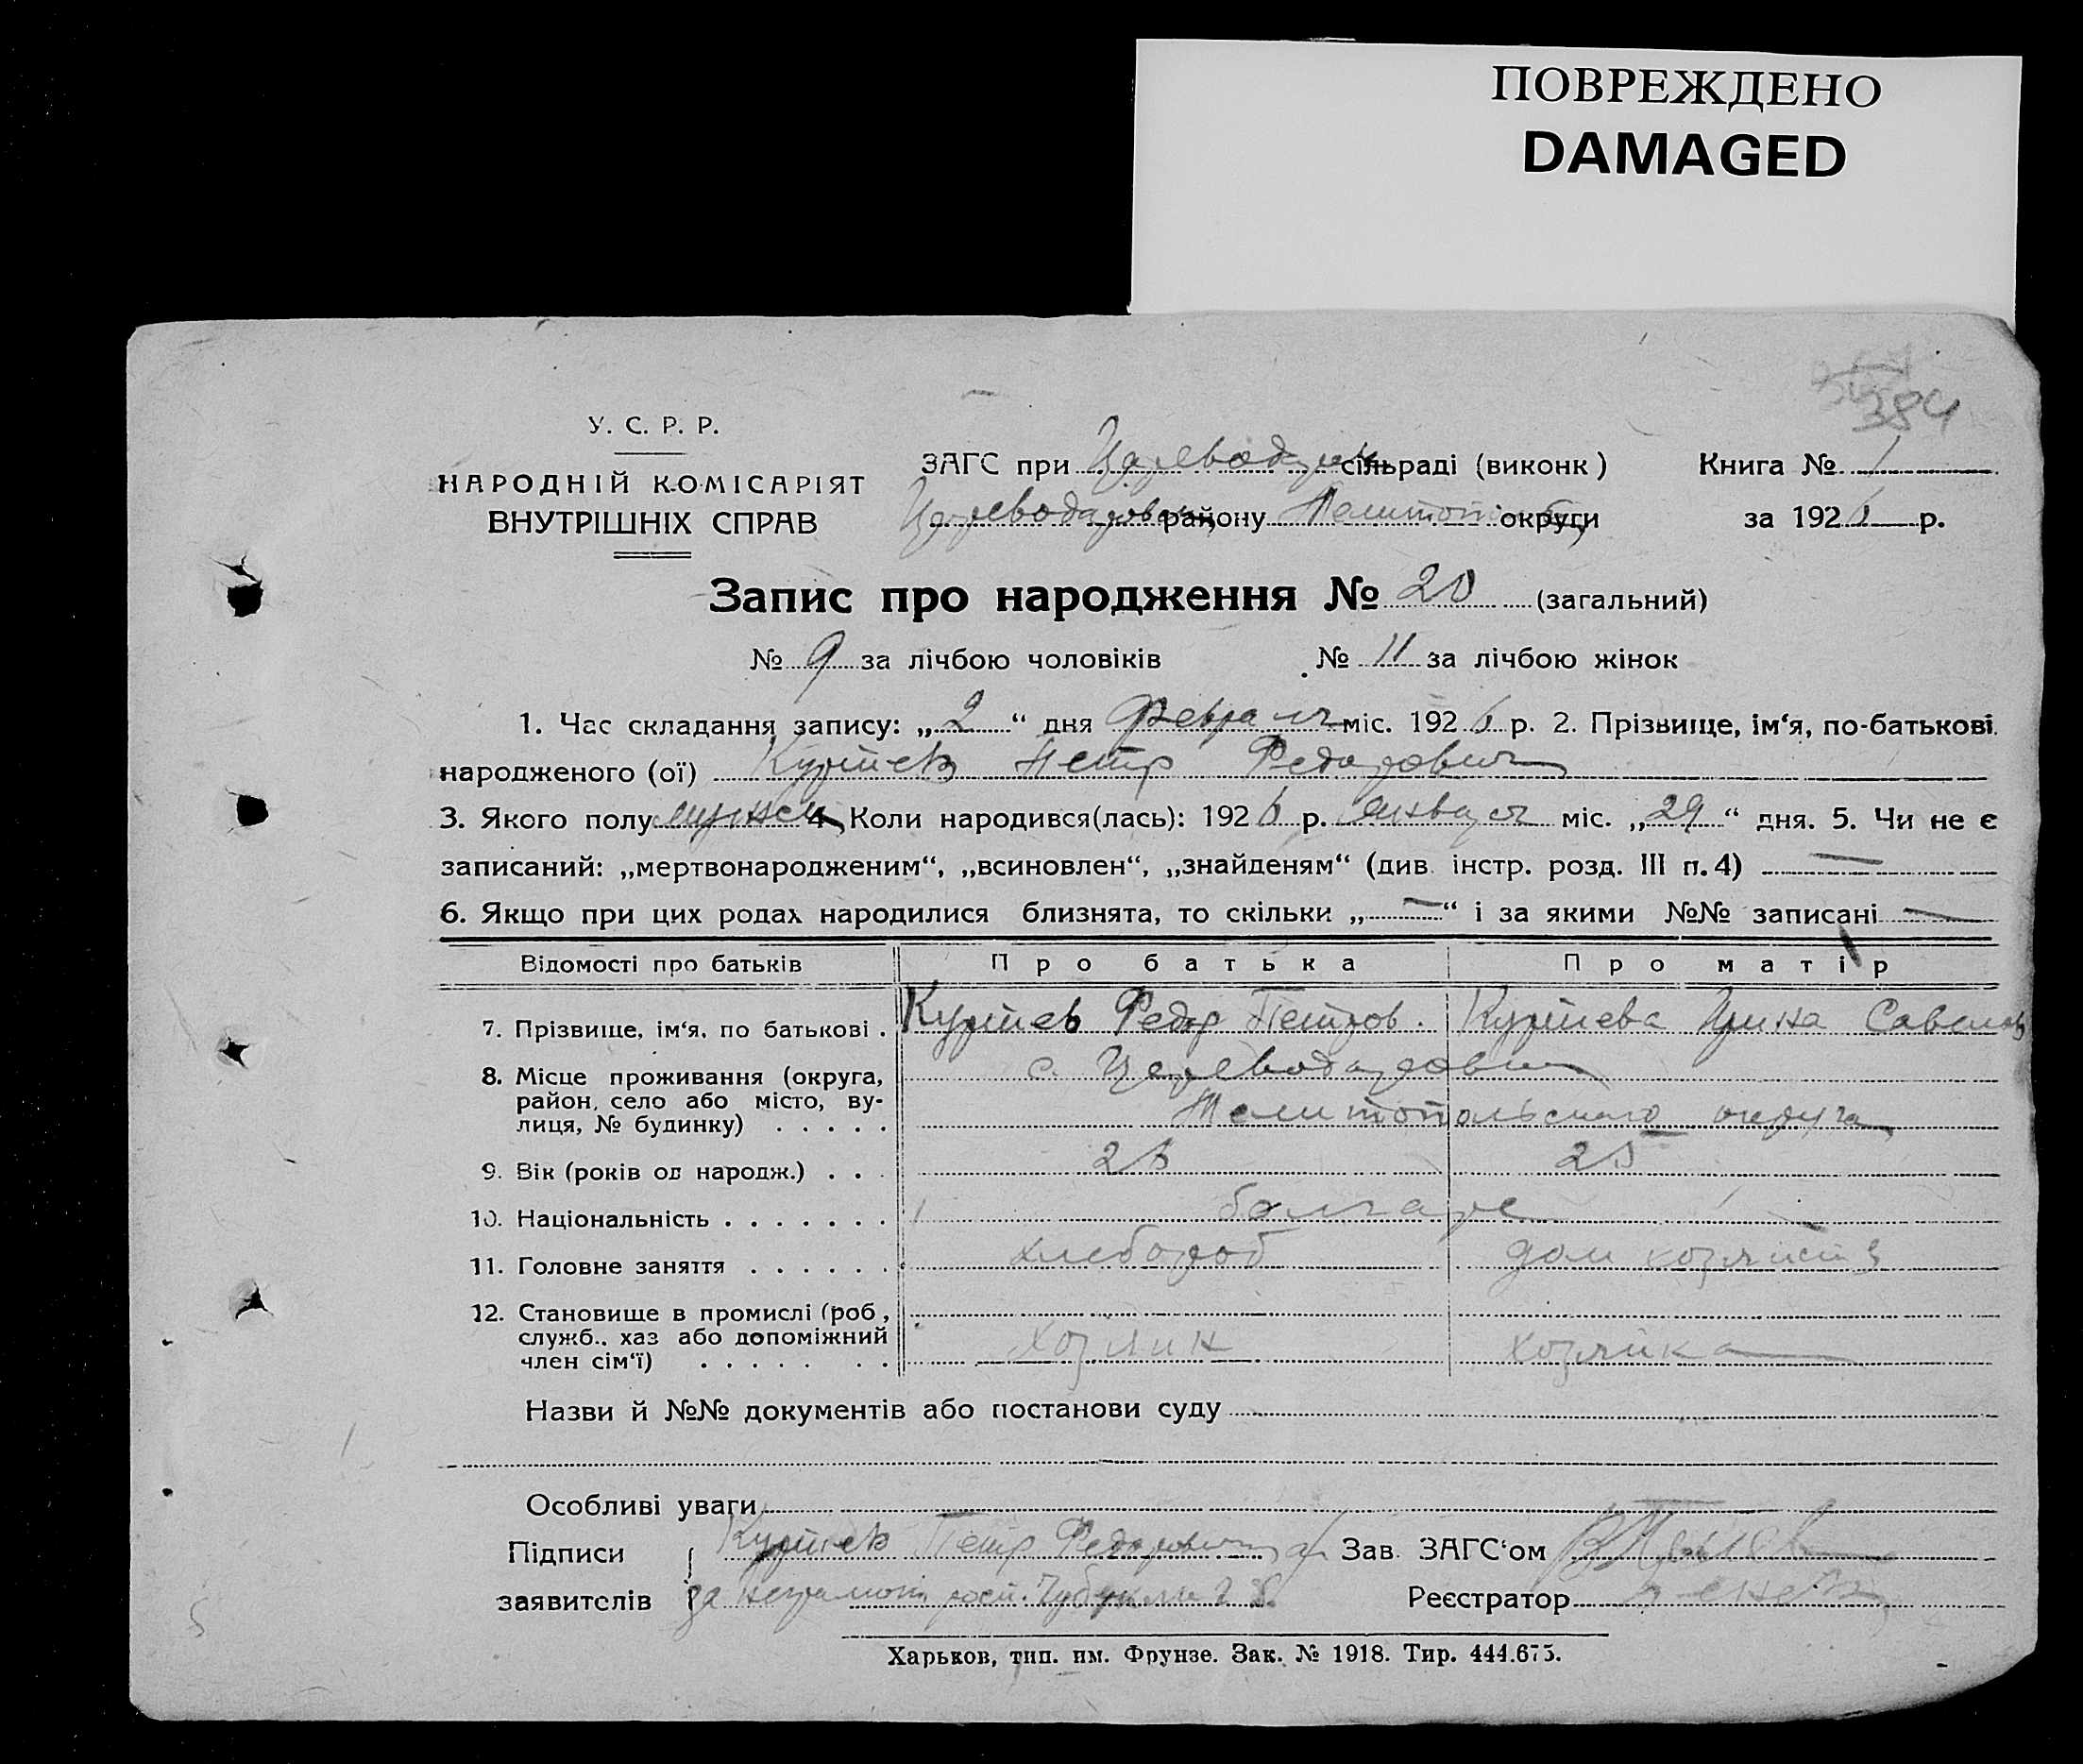 ПОВРЕЖДЕНО
DAMAGED
384
У. С. Р. Р.
НАРОДНІЙ КОМІСАРІЯТ
ВНУТРІШНІХ СПРАВ
ЗАГС при сільраді (виконк) Книга № 1
району округи за 1926 р.
Запис про народження № 20 (загальний)
№ 9 за лічбою чоловіків № 11 за лічбою жінок
1. Час складання запису: „2“ дня Февраля міс. 1926 р. 2. Прізвище, ім‘я, по-батькові
народженого (ої) Куртев Петр Федорович
3. Якого полу мужск 4. Коли народився(лась): 1926 р. января міс. „29“ дня. 5. Чи не є
записаний: „мертвонародженим“, „всиновлен“, „знайденям“ (див. інстр. розд. III п. 4) —
6. Якщо при цих родах народилися близнята, то скільки „—“ і за якими №№ записані —
Відомості про батьків Про батька Про матір
7. Прізвище, ім‘я, по батькові . Куртев Федор Петров. Куртева Ирина Савелов
8. Місце проживання (округа, с. Цареводаровка
район, село або місто, ву- Мелитопольского округа
лиця, № будинку) . . . . .
9. Вік (років од народж.) . . . 26 25
10. Національність . . . . . . . болгаре
11. Головне заняття . . . . . . хлебороб дом хозяйств
12. Становище в промислі (роб.,
служб., хаз або допоміжний хозяин хозяйка
член сім‘ї) . . . . . . .
Назви й №№ документів або постанови суду
Особливі уваги
Підписи Куртев Петр Федорович Зав. ЗАГС‘ом
заявителів за неграмот Реєстратор
Харьков, тип. им. Фрунзе. Зак. № 1918. Тир. 444.675.